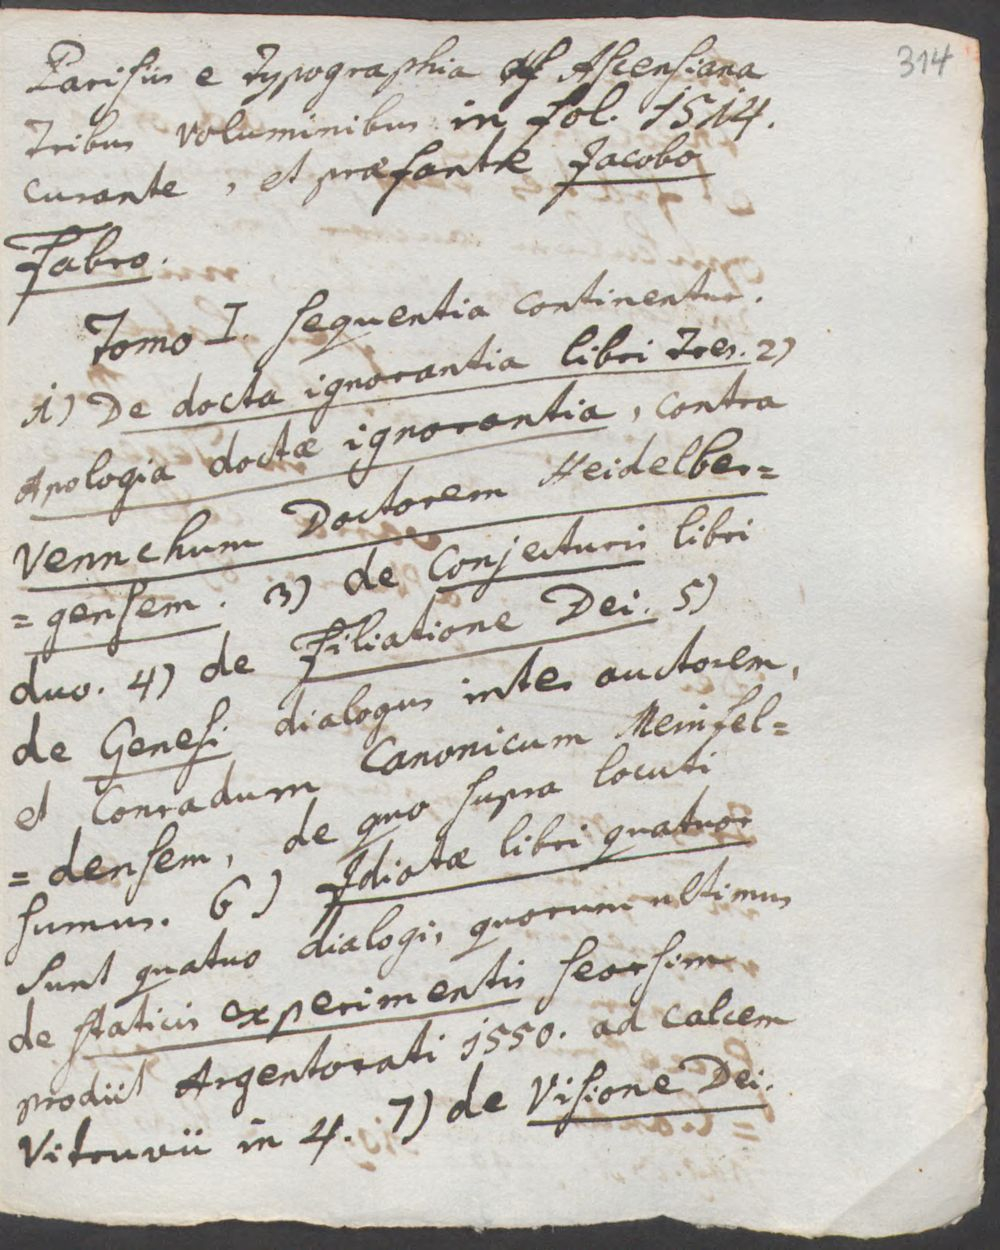 314
Parisiis e Typographia Ascensiana
Tribus voluminibus in fol. 1514.
curante, et præfante Jacobo
Fabro.
Tomo I. sequentia continentur.
1) De docta ignorantia libri Tres. 2)
Apologia doctæ ignorantia, contra
Vennchum Doctorem Heidelber=
=gensem. 3) de Conjecturis libri
duo. 4) de Filiatione Dei. 5)
de Genesi dialogus inter auctorem,
et Conradum Canonicum Meinfel=
=densem, de quo supra locuti
sumus. 6) Idiotæ libri quatuor
sunt quatuo dialogi, quorum ultimus
de staticis experimentis seorsim
prodiit Argentorati 1550. ad calcem
Vitruvii in 4. 7) de Visione Dei.